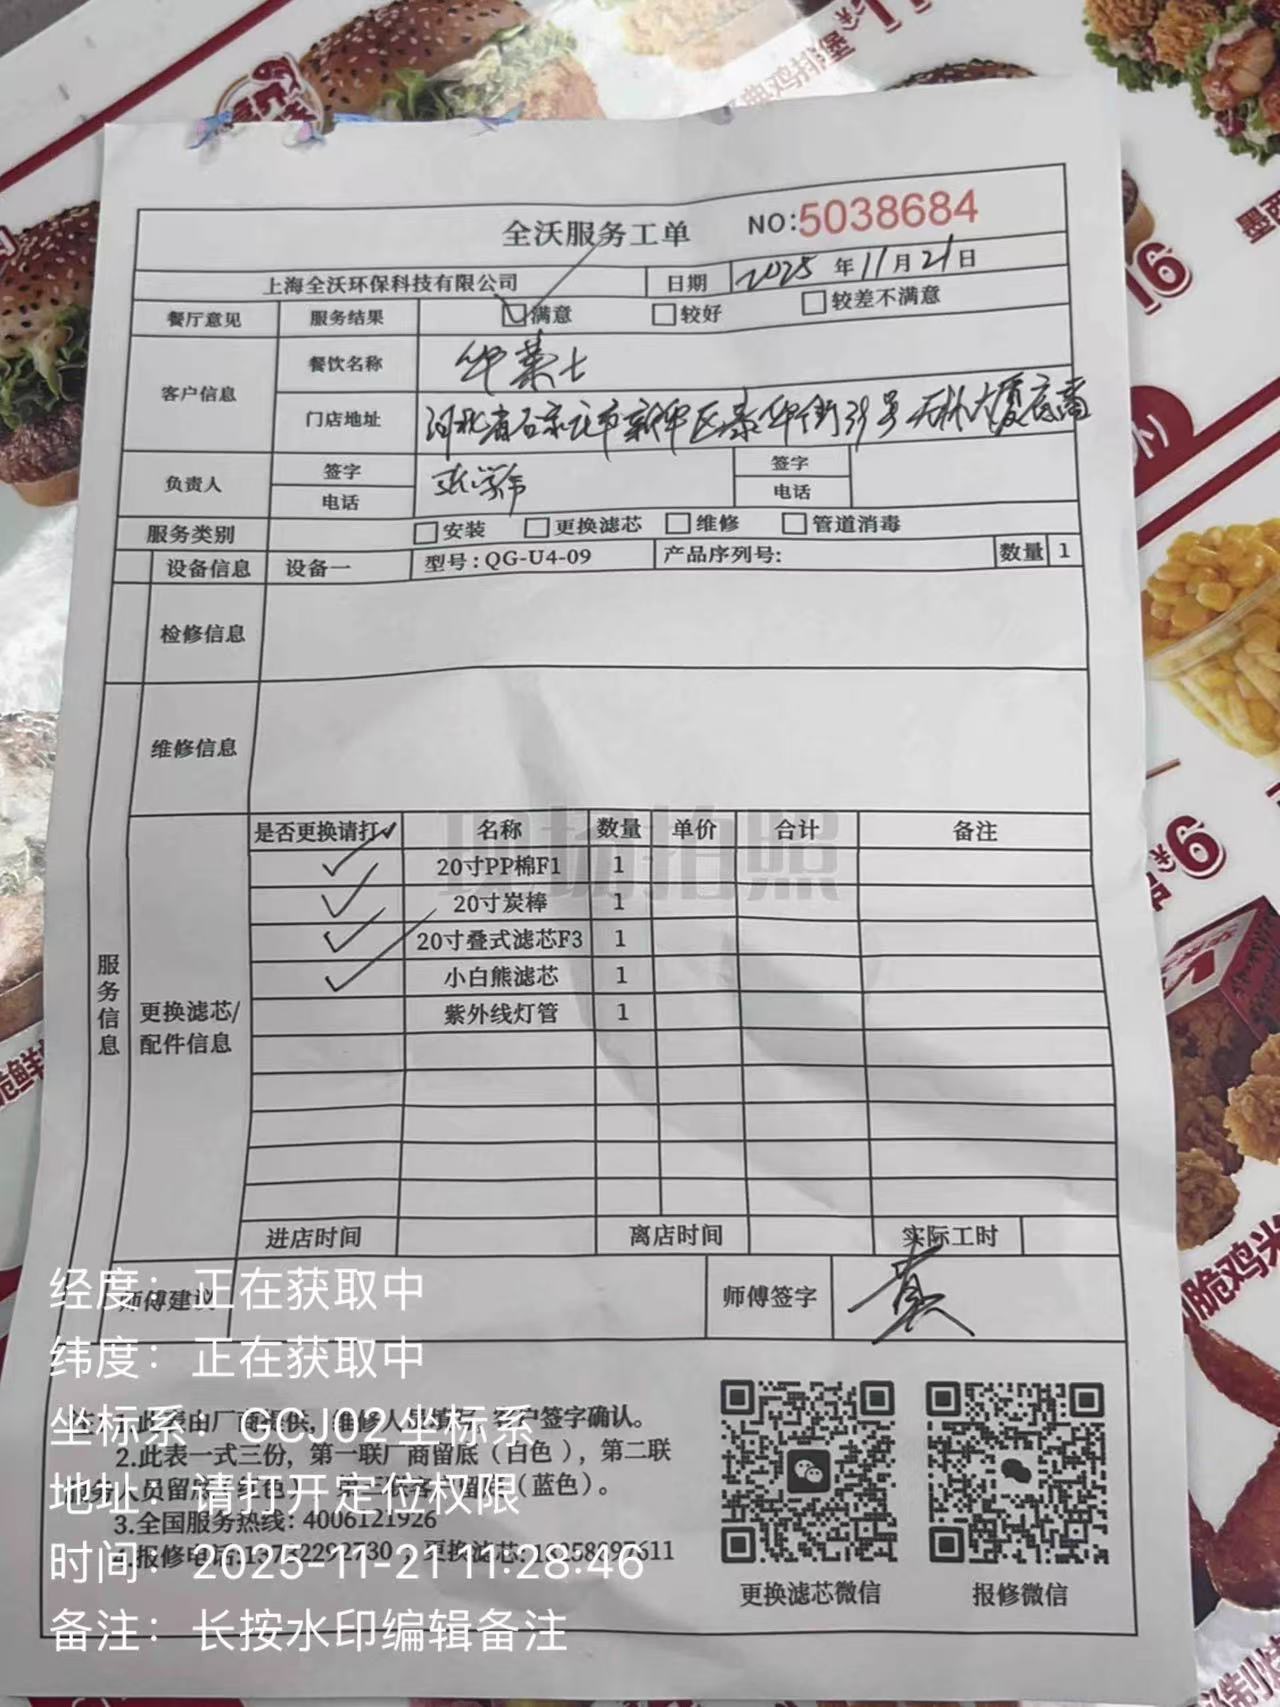 全沃服务工单 NO:5038684
上海全沃环保科技有限公司 日期 2025 年 11 月 21 日
餐厅意见 服务结果 满意 较好 较差不满意
客户信息 餐饮名称 华莱士
门店地址 河北省石家庄市新华区泰华街39号天林大厦底商
负责人 签字 签字
电话 电话
服务类别 安装 更换滤芯 维修 管道消毒
设备信息 设备一 型号:QG-U4-09 产品序列号: 数量 1
检修信息
维修信息
服务信息
更换滤芯/
配件信息
是否更换请打✓ 名称 数量 单价 合计 备注
✓ 20寸PP棉F1 1
✓ 20寸炭棒 1
✓ 20寸叠式滤芯F3 1
✓ 小白熊滤芯 1
紫外线灯管 1
现场拍照
进店时间 离店时间 实际工时
师傅建议 师傅签字
经度：正在获取中
纬度：正在获取中
坐标系：GCJ02坐标系
地址：请打开定位权限
时间：2025-11-21 11:28:46
备注：长按水印编辑备注
客户签字确认。
2.此表一式三份，第一联厂商留底（白色），第二联
（蓝色）。
3.全国服务热线: 4006121926
更换滤芯微信 报修微信